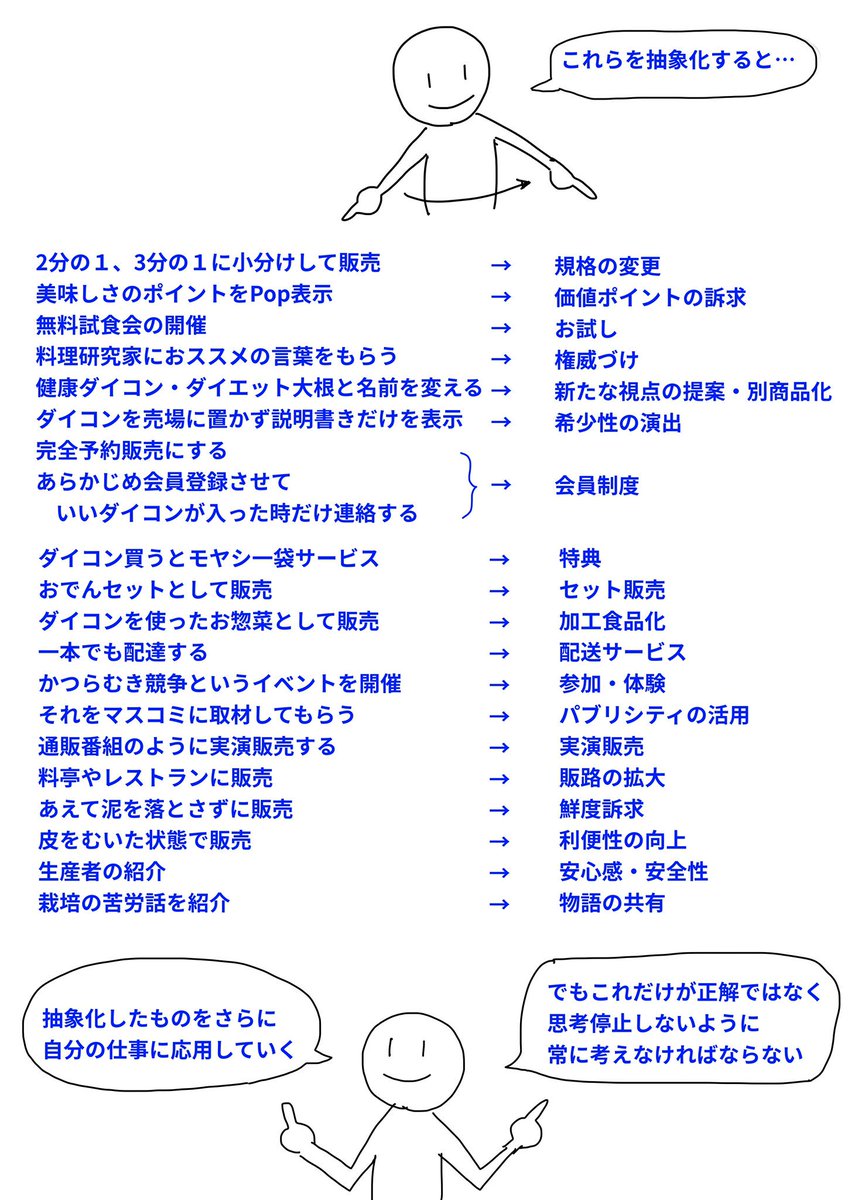 これらを抽象化すると…
2分の１、3分の１に小分けして販売 → 規格の変更
美味しさのポイントをPop表示 → 価値ポイントの訴求
無料試食会の開催 → お試し
料理研究家におススメの言葉をもらう → 権威づけ
健康ダイコン・ダイエット大根と名前を変える → 新たな視点の提案・別商品化
ダイコンを売場に置かず説明書きだけを表示 → 希少性の演出
完全予約販売にする
あらかじめ会員登録させて → 会員制度
いいダイコンが入った時だけ連絡する
ダイコン買うとモヤシ一袋サービス → 特典
おでんセットとして販売 → セット販売
ダイコンを使ったお惣菜として販売 → 加工食品化
一本でも配達する → 配送サービス
かつらむき競争というイベントを開催 → 参加・体験
それをマスコミに取材してもらう → パブリシティの活用
通販番組のように実演販売する → 実演販売
料亭やレストランに販売 → 販路の拡大
あえて泥を落とさずに販売 → 鮮度訴求
皮をむいた状態で販売 → 利便性の向上
生産者の紹介 → 安心感・安全性
栽培の苦労話を紹介 → 物語の共有
抽象化したものをさらに
自分の仕事に応用していく
でもこれだけが正解ではなく
思考停止しないように
常に考えなければならない